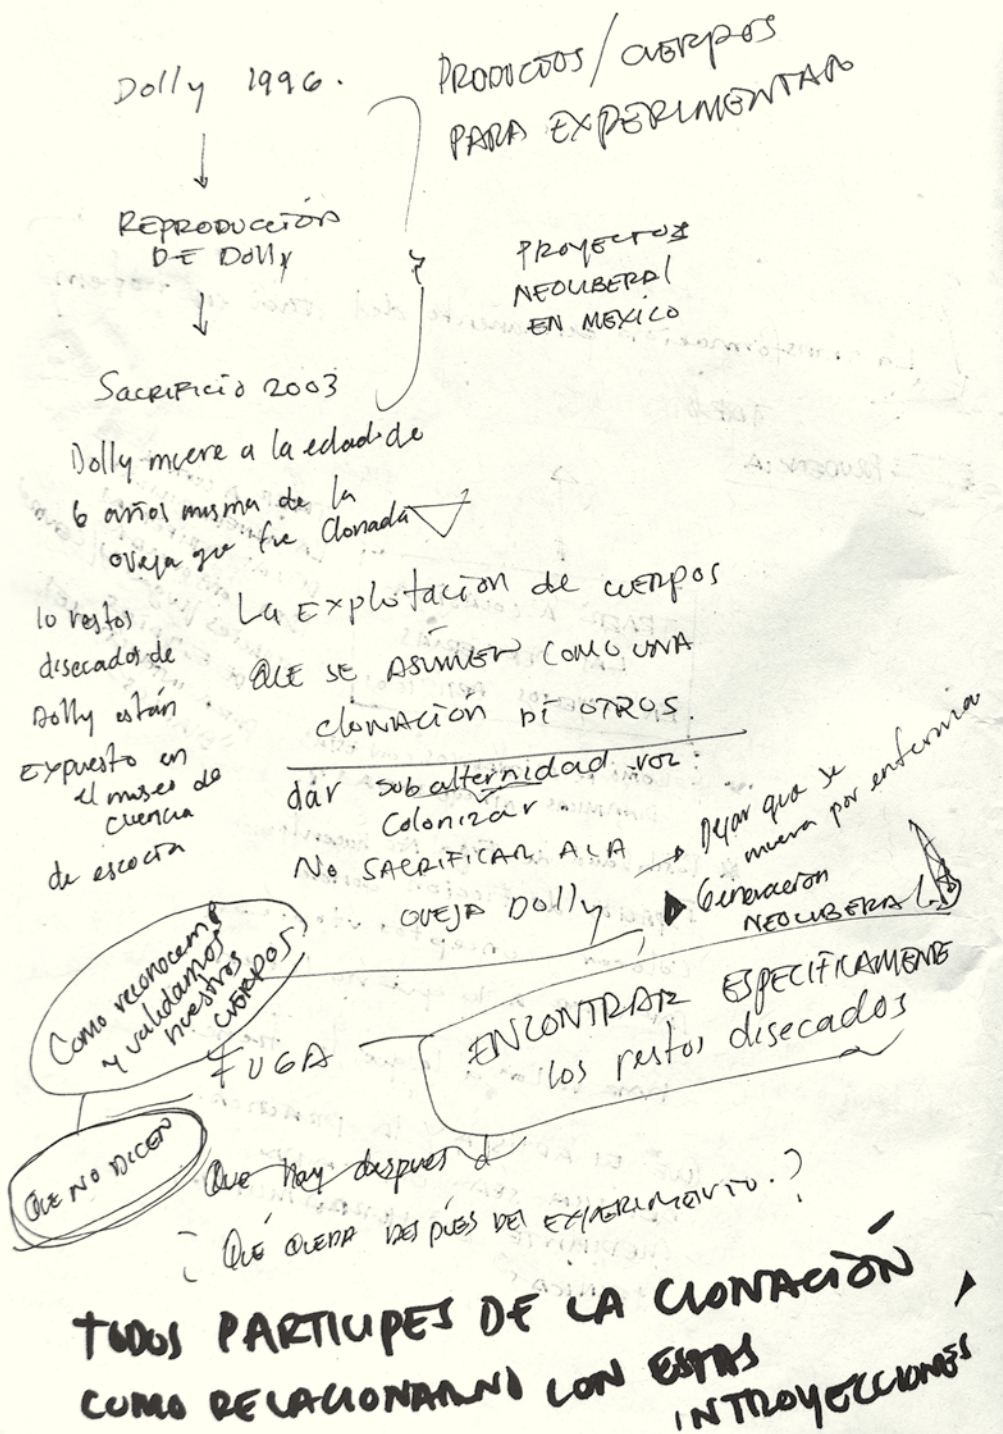 Dolly 1996.
PRODUCTOS/CUERPOS
PARA EXPERIMENTAR
REPRODUCCIÓN
DE Dolly
PROYECTOS
NEOLIBERAL
EN MEXICO
SACRIFICIO 2003
Dolly muere a la edad de
6 años misma de la
oveja que fue Clonada
lo restos
disecados de
Dolly están
Expuesto en
el museo de
ciencia
de escocia
La Explotación de cuerpos
QUE SE ASUMEN COMO UNA
clonación DE OTROS.
dar subalternidad voz.
Colonizar.
No SACRIFICAR A LA
OVEJA Dolly
Dejar que se
muera por enfermia
Generacion
NEOLIBERAL
Como reconocemos
y validamos
nuestros
CUERPOS
FUGA
ENCONTRAR ESPECIFICAMENTE
los restos disecados
QUE NO DICEN
Que hay despues d
¿QUÉ QUEDA DESPÚES DEL EXPERIMENTO.?
TODOS PARTICIPES DE LA CLONACIÓN
COMO RELACIONARNO CON ESTAS
INTROYECCIONES